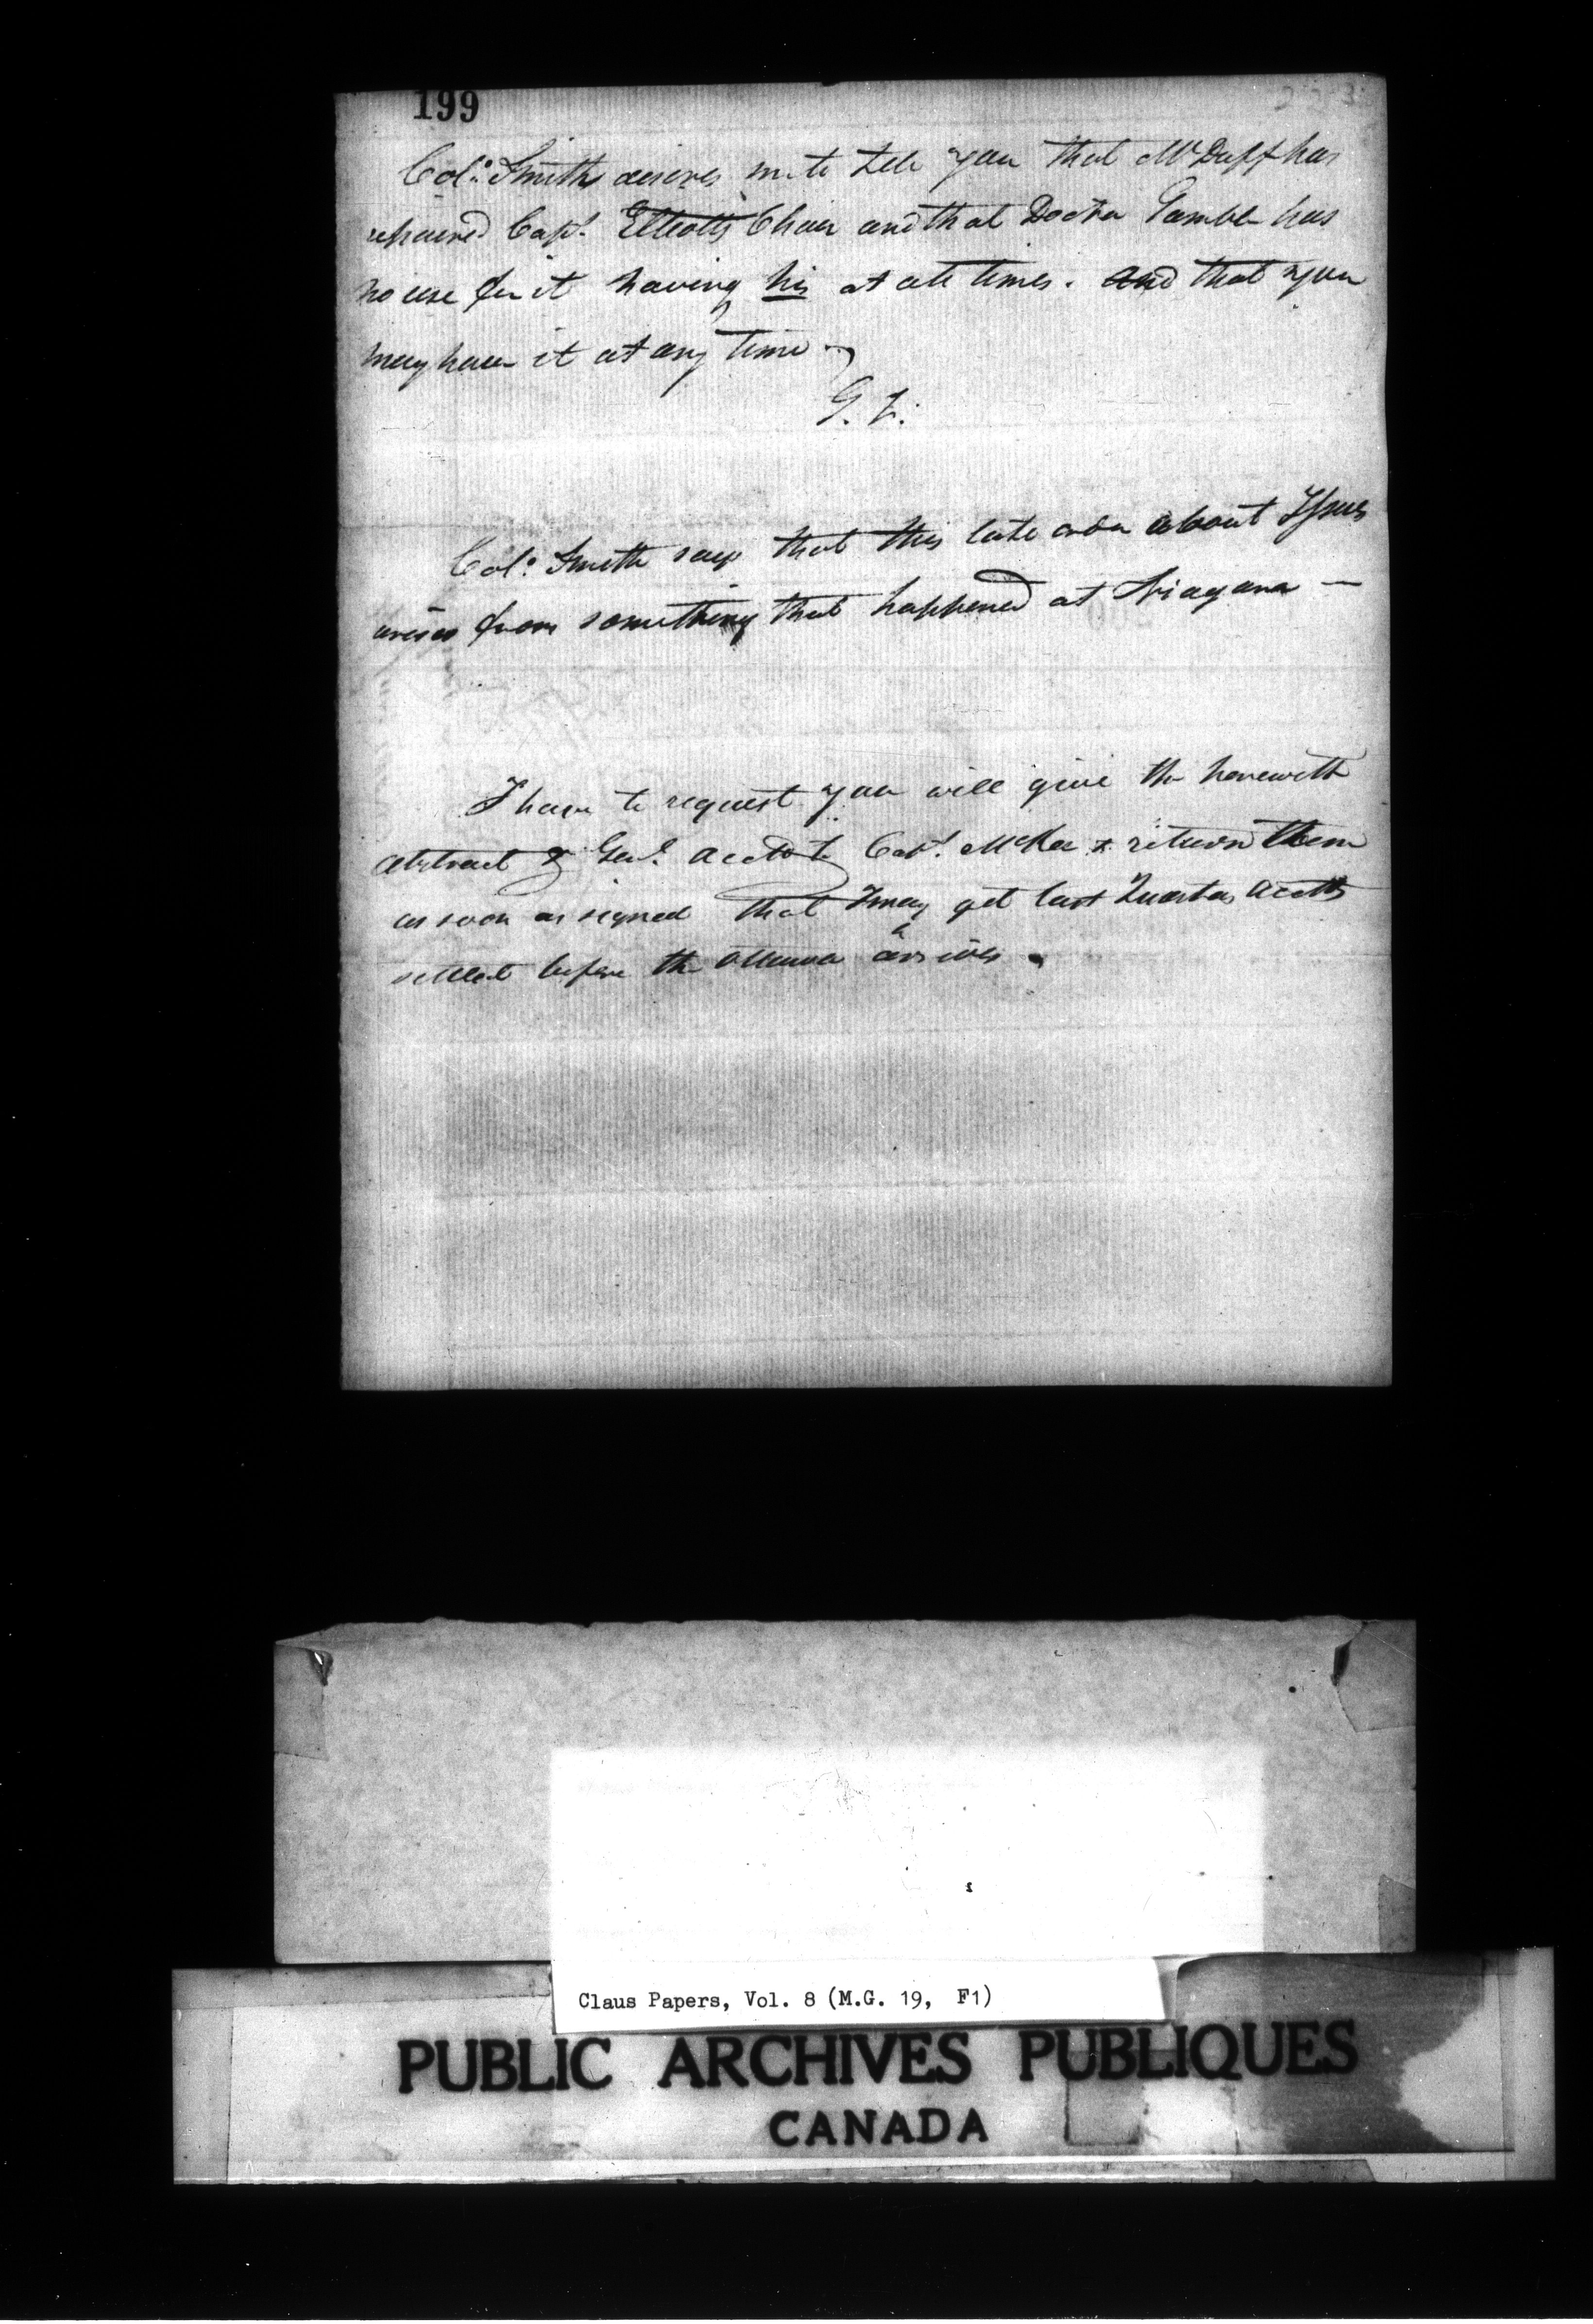 199
Col.o Smith desires me to tell you that Mr Duff has
repaired Capt. Elliotts Chair and that Doctor Gamble has
no use for it having his at all times. and that you
may have it at any time
G. I.
Col.o Smith says that this late order about Issues
arises from something that happened at Niagara —
I have to request you will give the herewith
Abstract & Genl. Acctt to Capt. McKee & return them
as soon as signed that I may get last Quarters Acctts
settled before the Ottawa arrives.
Claus Papers, Vol. 8 (M.G. 19, F1)
PUBLIC ARCHIVES PUBLIQUES
CANADA